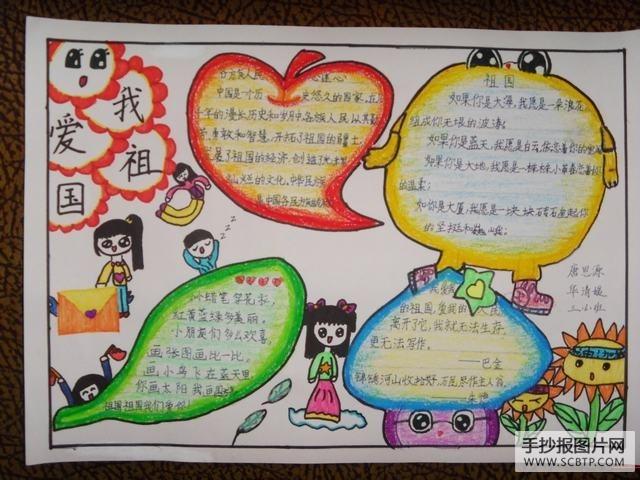 我爱祖国
各族人民 心连心
中国是一个历 史悠久的国家,在
千年的漫长历史和岁月中各族人民以其勤
劳、勇敢和智慧,开拓了祖国的疆土,
发展了祖国的经济,创造了
灿烂的文化,中华民
是中国各民族
祖国
如果你是大海,我愿是一朵浪花
组成你无垠的波涛;
如果你是蓝天,我愿是白云
如果你是大地,我愿是一棵棵小草
的温柔;
如你是大厦,我愿是一块块砖石
的坚挺和巍峨;
小蜡笔 穿花衣,
红黄蓝绿多美丽,
小朋友们多么欢喜,
画张图画比一比,
画小鸟飞在蓝天里,
你画太阳 我画国
祖国祖国我们爱你!
我爱我
的祖国,爱我的人民
离开了它,我就无法生存,
更无法写作。
——巴金
锦绣河山收拾好,万民尽作主人翁。
——朱德
唐思源
华清媛
三小班
手抄报图片网
WWW.SCBTP.COM